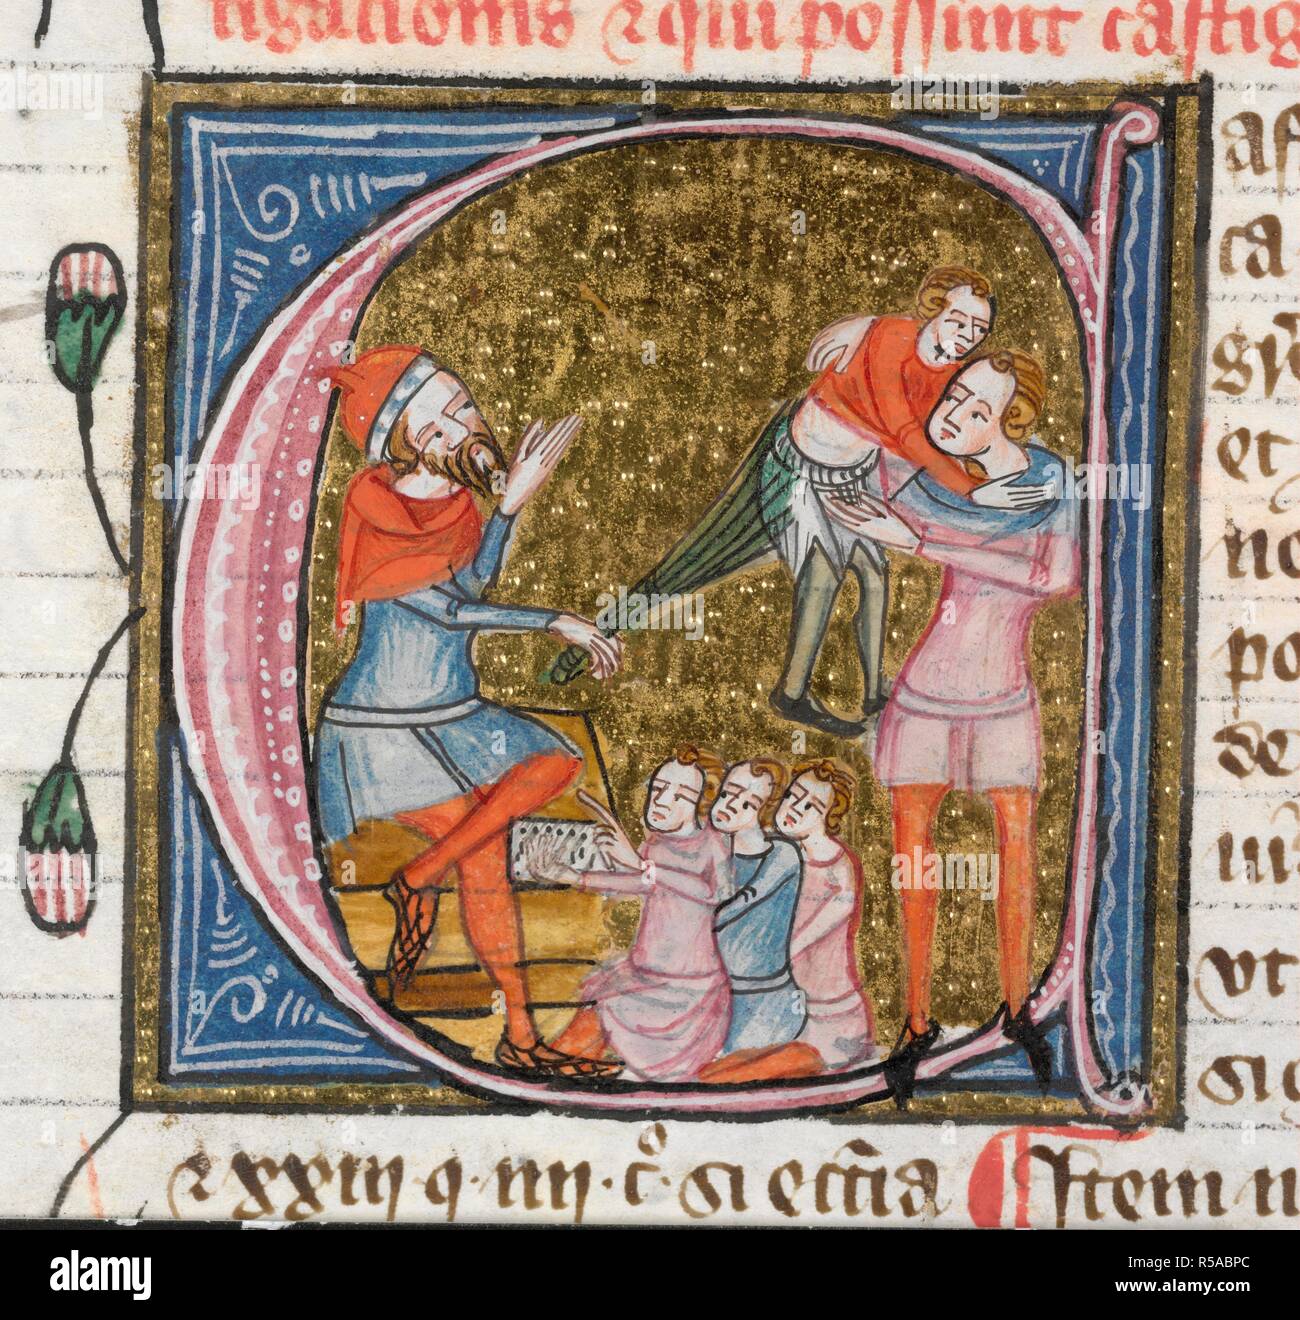 tigationis ⁊ qui possunt castig
as
ca
et
no
po
de
ut
⁊ xxiij q. iiij. c̊. si ecc̄ia ¶ Item n
alamy
Image ID: R5ABPC
www.alamy.com